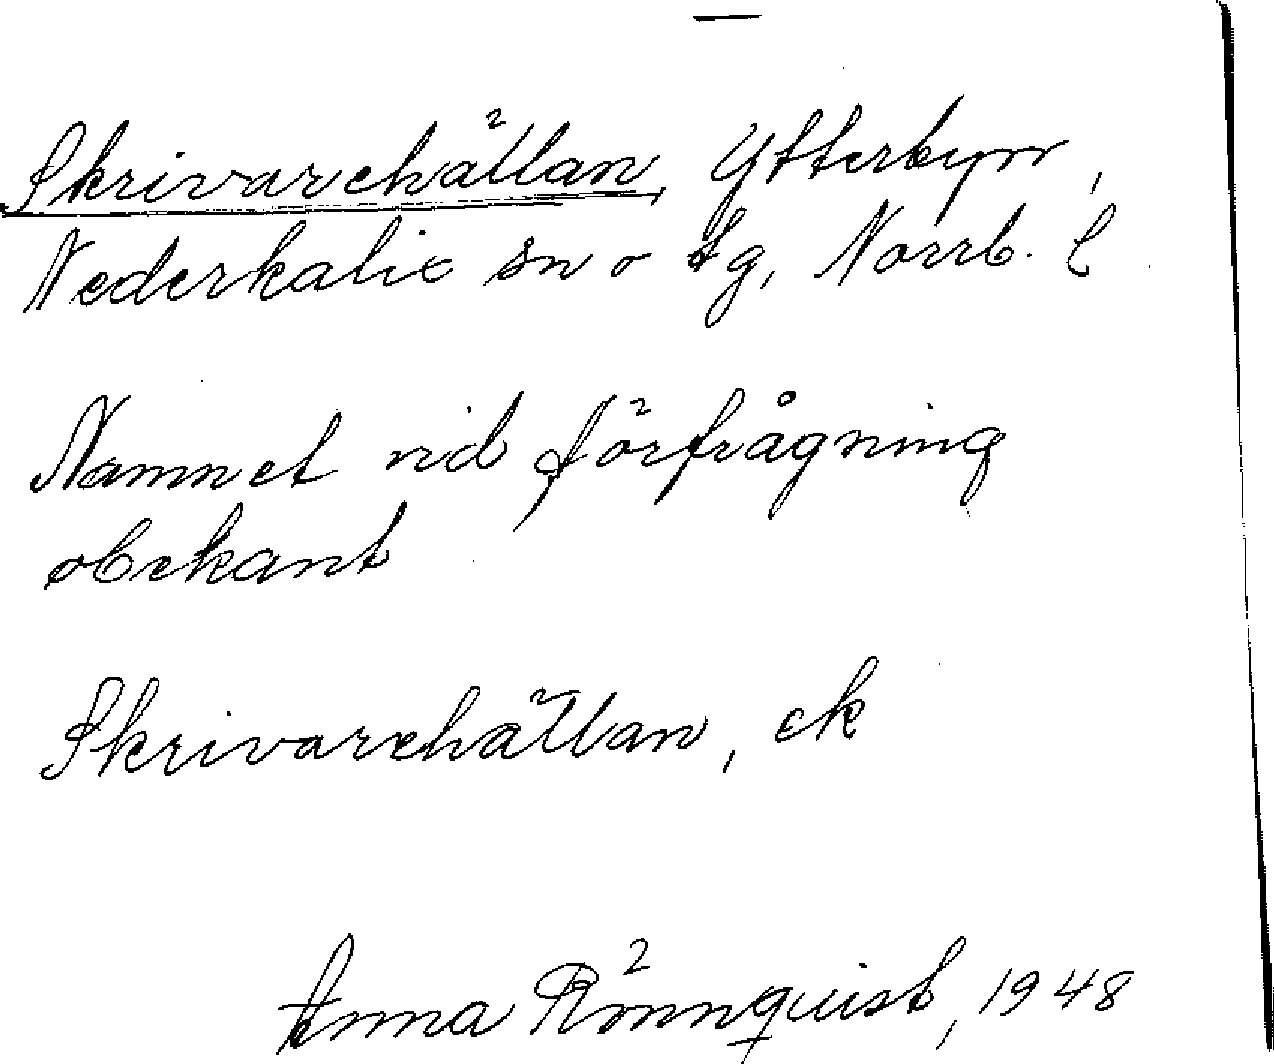 Skrivarehällan, Ytterbyn,
Nederkalix sn o tg, Norrb. l
Namnet vid förfrågning
obekant
Skrivarehällan, ek
Anna Rönnquist, 1948